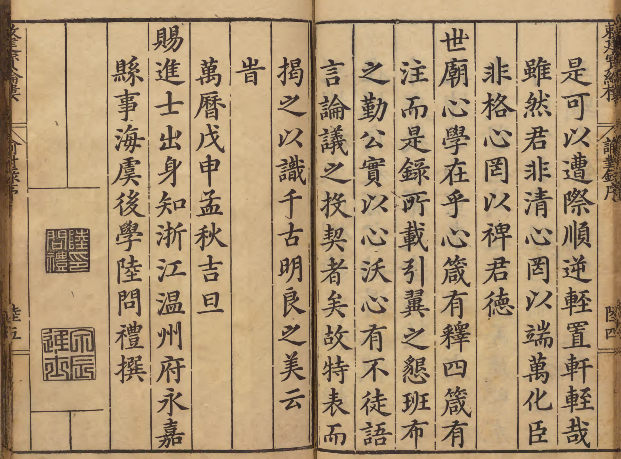 敕建寶綸樓
諭對錄序
陸四
是可以遭際順逆輊置軒輊哉
雖然君非清心罔以端萬化臣
非格心罔以裨君徳
世廟心學在乎心箴有釋四箴有
注而是錄所載引翼之懇班布
之勤公實以心沃心有不徒語
言論議之投契者矣故特表而
揭之以識千古明良之美云
旹
萬曆戊申孟秋吉旦
賜進士出身知浙江温州府永嘉
縣事海虞後學陸問禮撰
陸印問禮
陸五